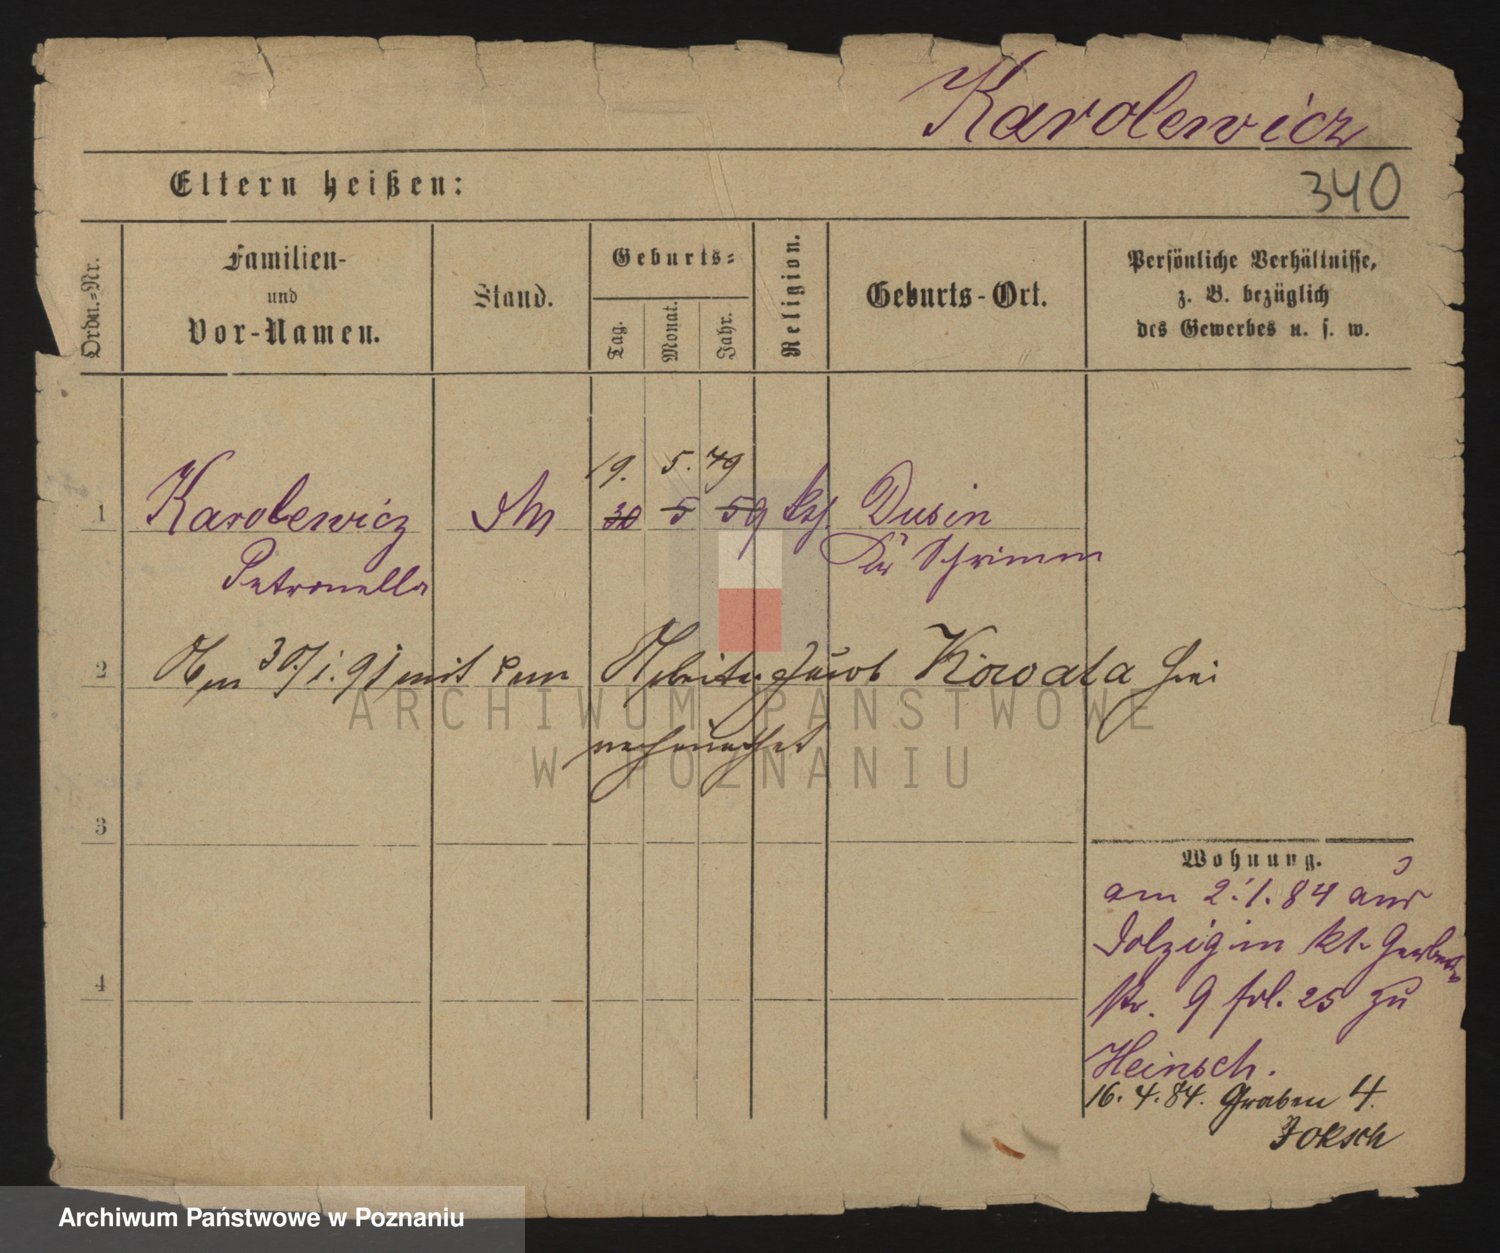 Karolewicz
Eltern heißen:
340
Ordn.=Nr.
Familien-
und
Vor-Namen.
Stand.
Geburts=
Tag.
Monat.
Jahr.
Religion.
Geburts-Ort.
Persönliche Verhältnisse,
z. B. bezüglich
des Gewerbes u. s. w.
19. 5. 79
1 Karolewicz 30 5 59 kth. Dusin
Petronella Kr Schrimm
2 Am 30./1. 91 mit dem Arbeiter Jacob Kowala hier
verheirathet
3
4
Wohnung.
am 2.1.84 aus
Dolzig in kl. Gerber
str. 9 fol. 25 zu
Heinsch.
16. 4. 84. Graben 4.
Joksch
ARCHIWUM PAŃSTWOWE
W POZNANIU
Archiwum Państwowe w Poznaniu